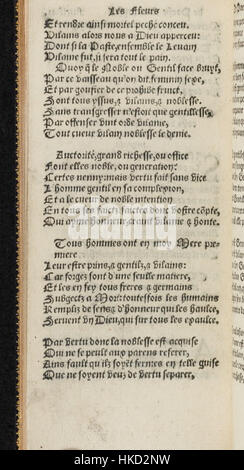 Les Fleurs
Et rendre ainsi mortel peché conceu.
Vilains alors nous a Dieu apperceu:
Dont si la Paste, ensemble le Levain
Vilaine fut, il sera tout le pain.
Quoy q̃ le Noble ou Gentil face Bruyt,
Par ce vaisseau qu'on dit femynin sexe,
Et par gouster de ce prohibé fruict,
Sont tous yssus, & vilains, & noblesse.
Sans transgresser n'estoit que gentillesse,
Par offenser vint orde vilainie,
Tout cueur vilain noblesse le denie.
Auctorité, grand richesse, ou office
Font elles noble, ou generation:
Certes nenny: mais vertu fait sans vice
L'homme gentil en sa compleyion,
Et a le cueur de noble intention
En tous ses faictz
Qui ayme honneur & honte.
Tous hommes ont en moy Mere pre
miere
Leur estre prins, & gentilz, & vilains:
Car forgés sont d'une faulle matiere,
Et les en fey tous freres & germains
Subgectz a Mort: toutesfois les humains
Rempliz de sens, d'honneur qui les haulce,
Servent vn Dieu, qui sur tous les epaulce.
Par vertu donc la noblesse est acquise
Qui ne se peult aux parens referer,
Ains fault qu'ilz soyent fermes en telle guise
Que ne soyent veuz de vertu separer,
alamy
Image ID: HKD2NW
www.alamy.com